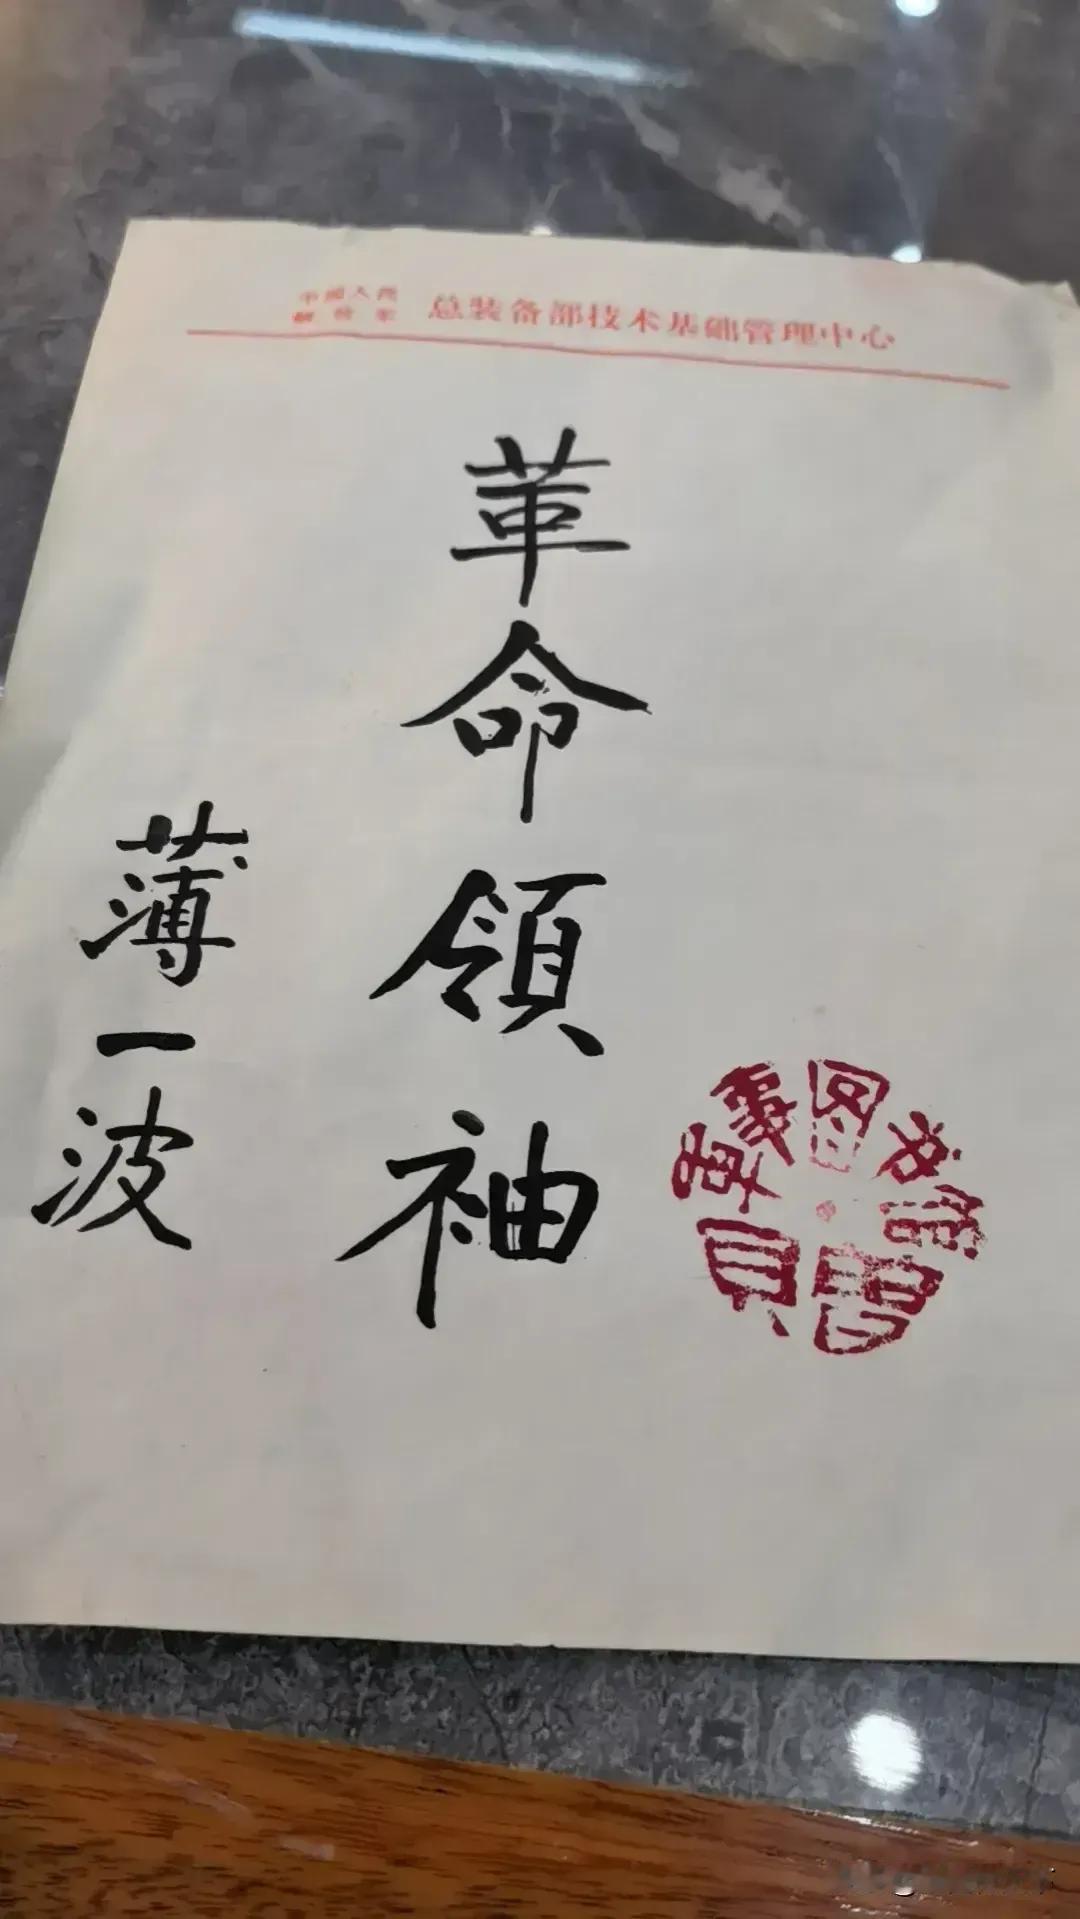 中国人民
解放军 总装备部技术基础管理中心
革命領袖
薄一波